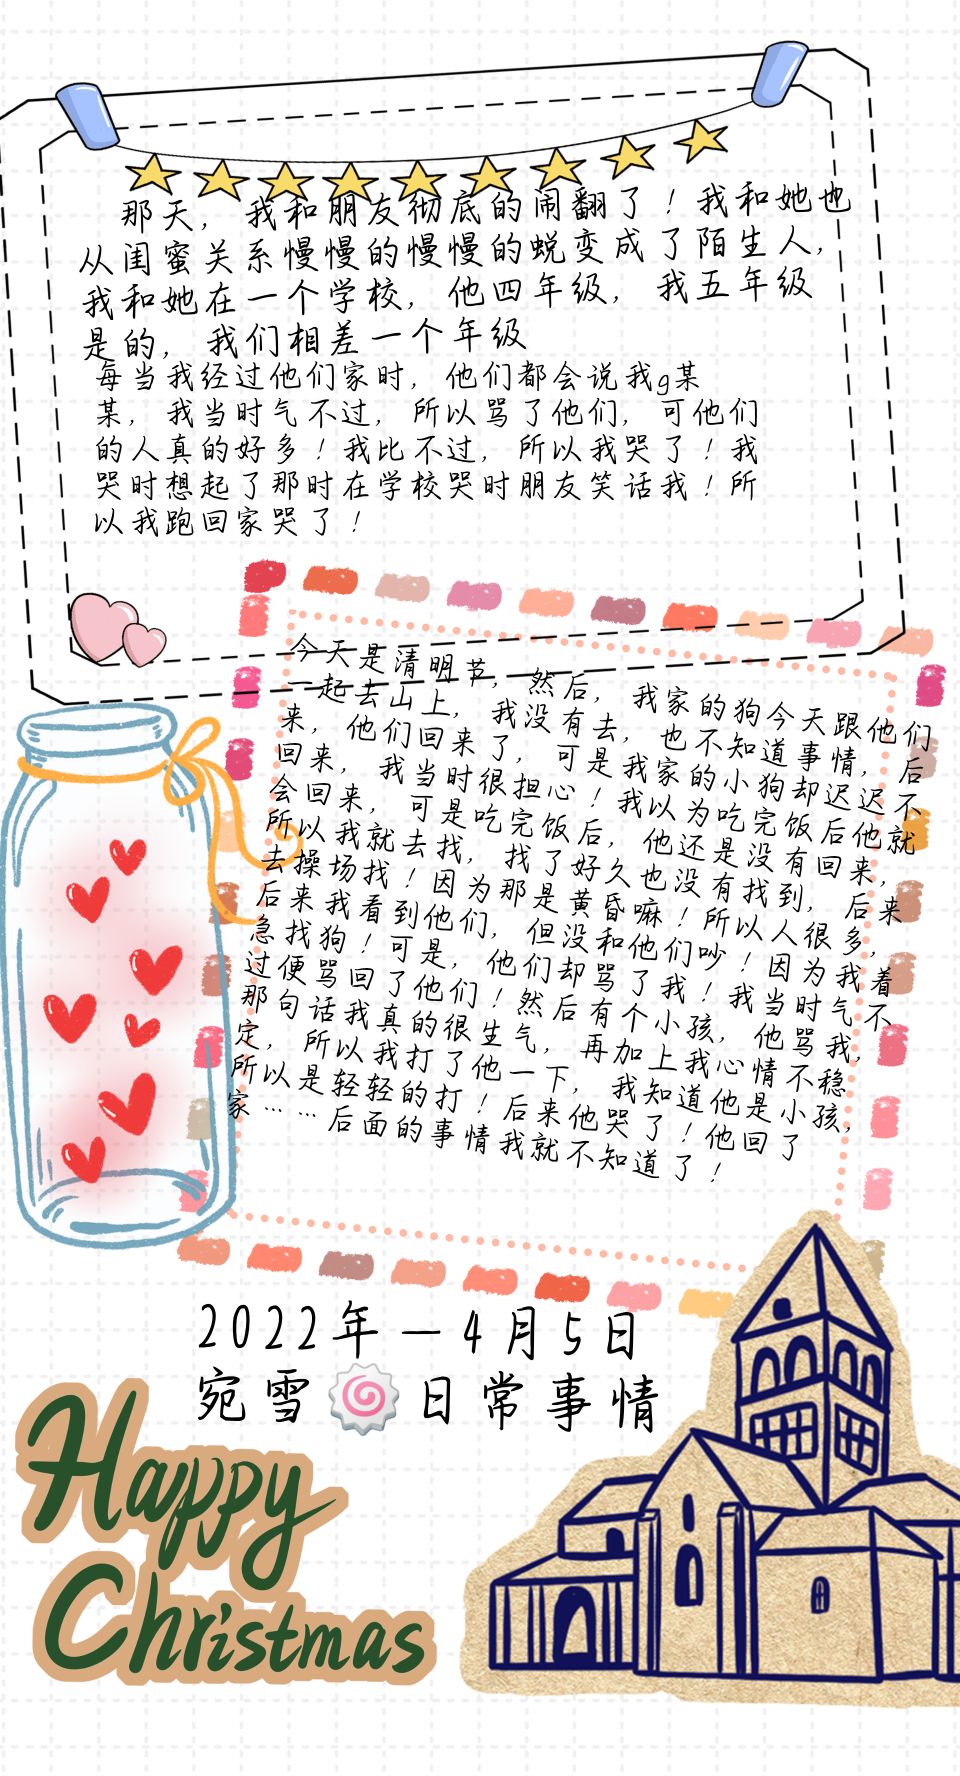 那天，我和朋友彻底的闹翻了！我和她也
从闺蜜关系慢慢的慢慢的蜕变成了陌生人，
我和她在一个学校，他四年级，我五年级
是的，我们相差一个年级
每当我经过他们家时，他们都会说我g某
某，我当时气不过，所以骂了他们，可他们
的人真的好多！我比不过，所以我哭了！我
哭时想起了那时在学校哭时朋友笑话我！所
以我跑回家哭了！
今天是清明节，然后，我家的狗今天跟他们
一起去山上，我没有去，也不知道事情，后
来，他们回来了，可是我家的小狗却迟迟不
回来，我当时很担心！我以为吃完饭后他就
会回来，可是吃完饭后，他还是没有回来，
所以我就去找，找了好久也没有找到，后来
去操场找！因为那是黄昏嘛！所以人很多，
后来我看到他们，但没和他们吵！因为我着
急找狗！可是，他们却骂了我！我当时气不
过便骂回了他们！然后有个小孩，他骂我，
那句话我真的很生气，再加上我心情不稳
定，所以我打了他一下，我知道他是小孩，
所以是轻轻的打！后来他哭了！他回了
家……后面的事情我就不知道了！
2022年—4月5日
宛雪🍥日常事情
Happy
Christmas